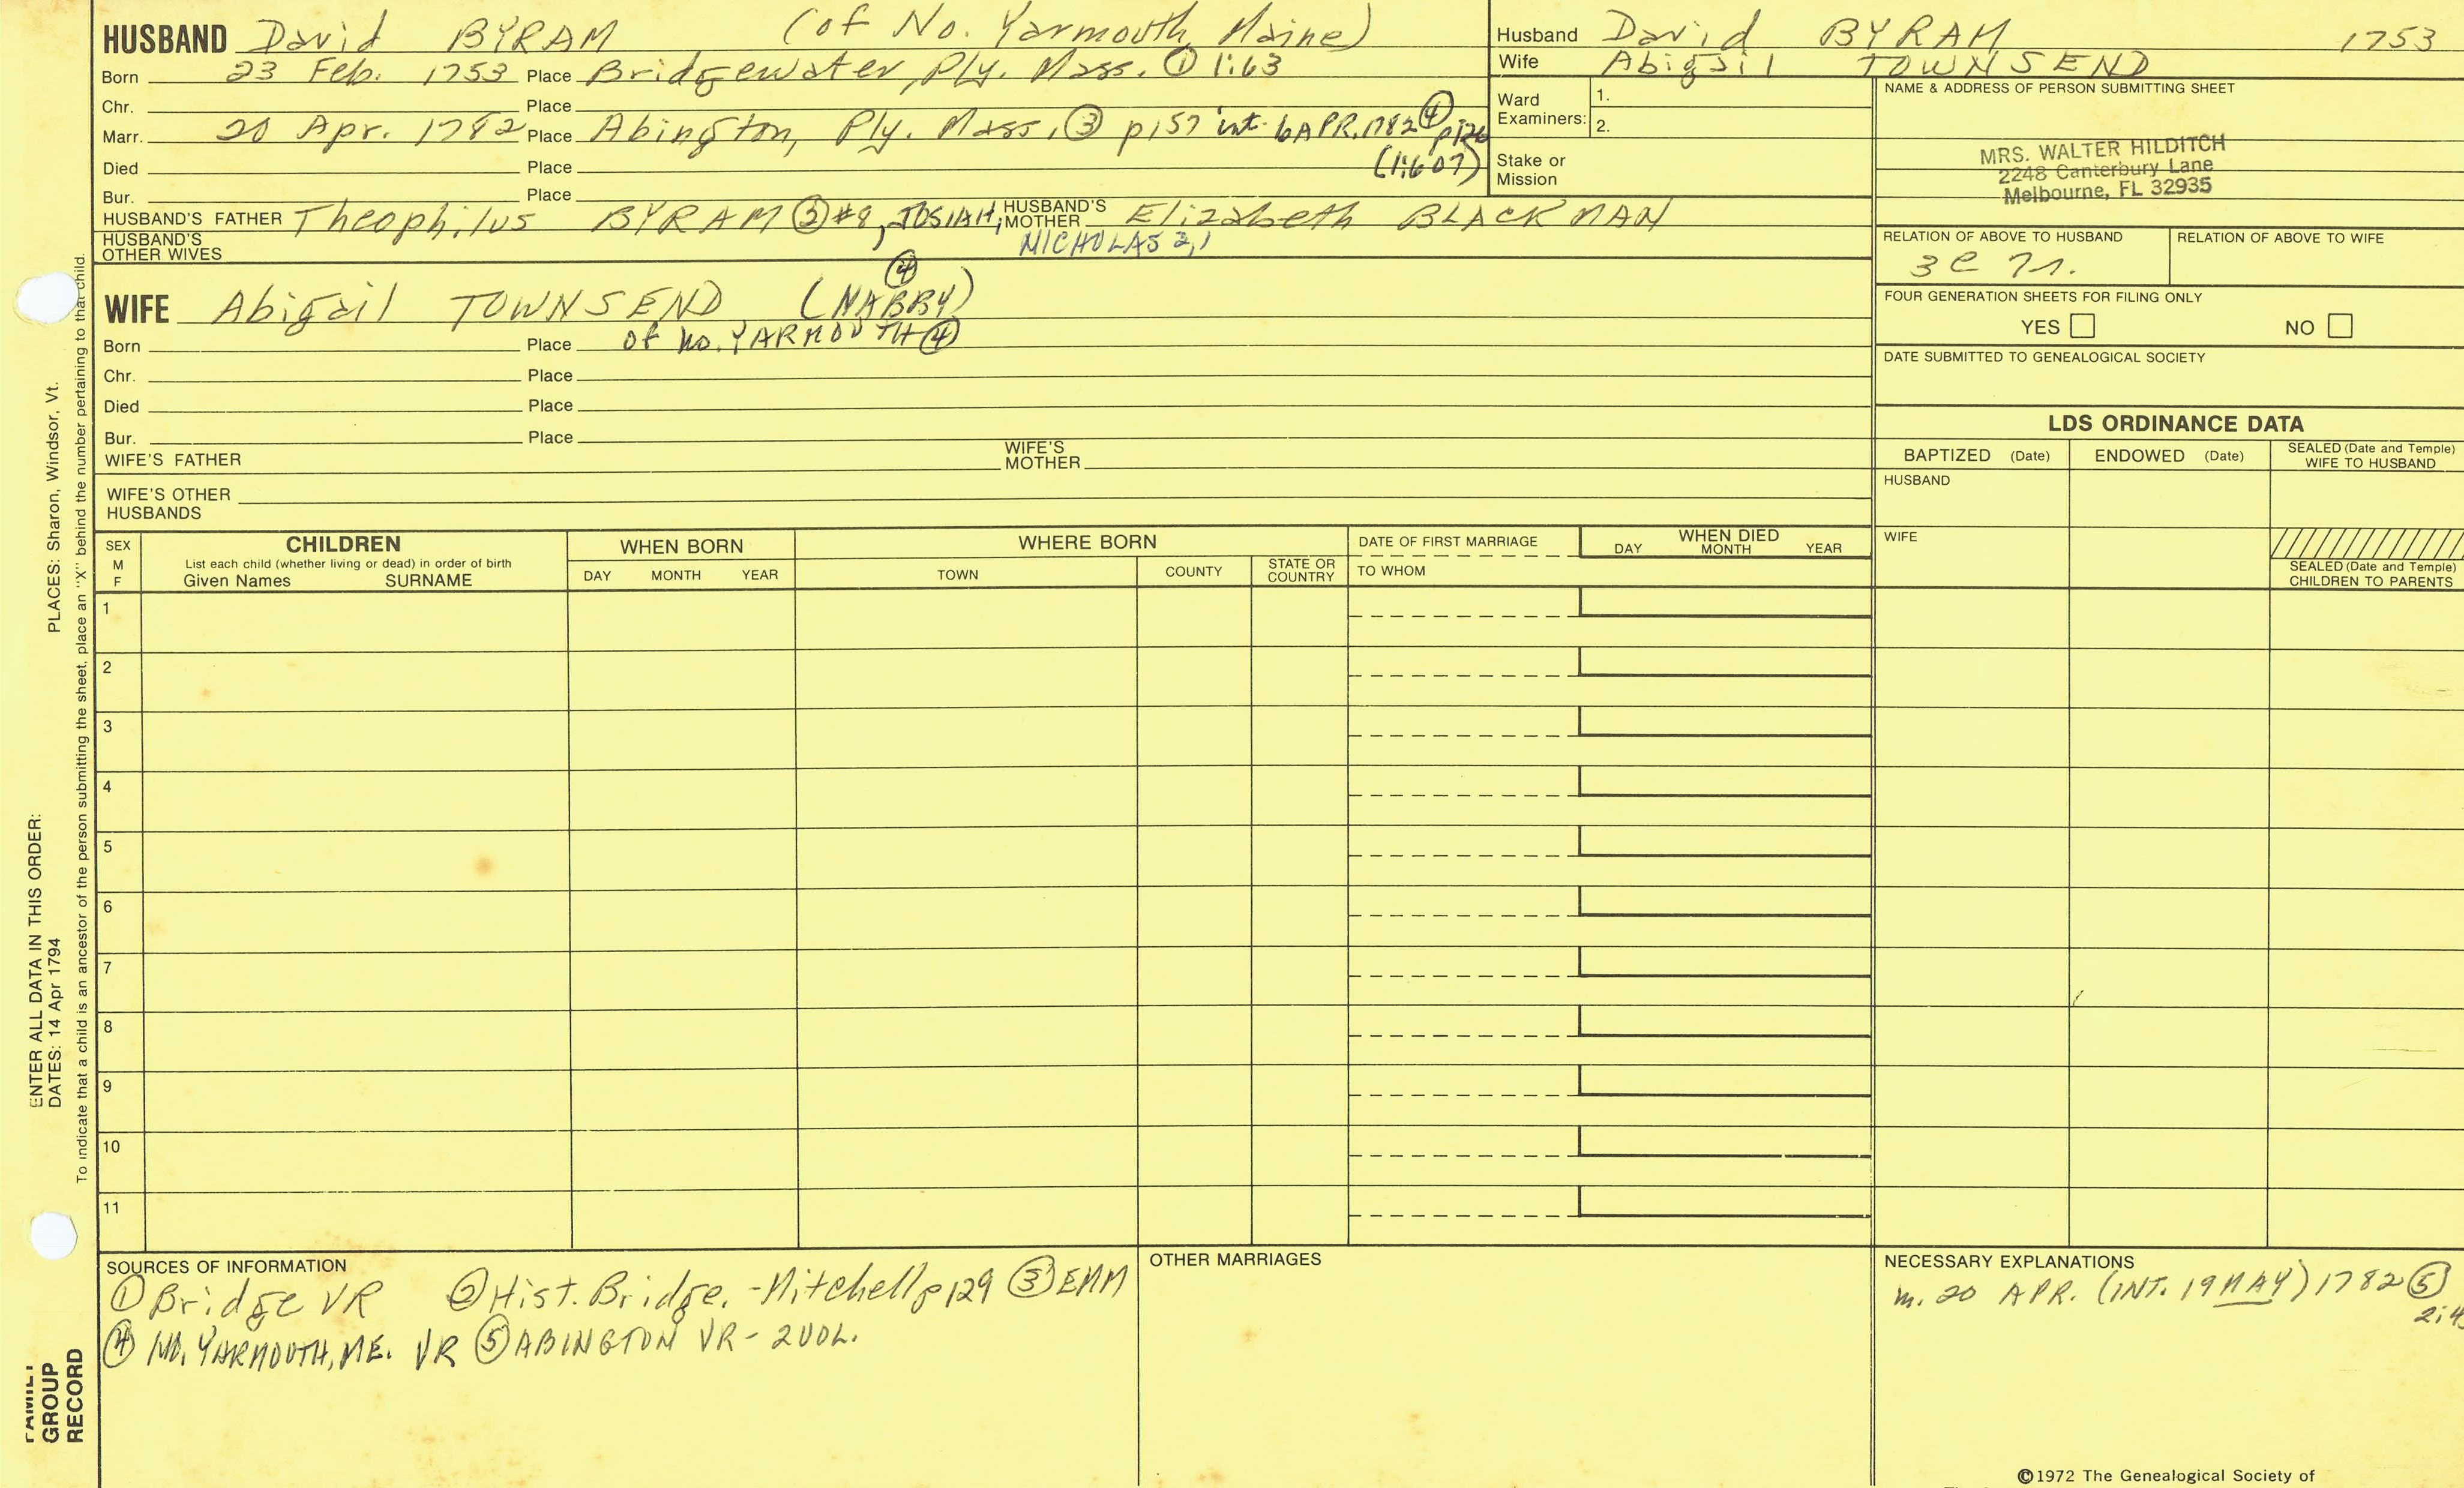 HUSBAND David BYRAM (of No. Yarmouth, Maine)
Born 23 Feb. 1753 Place Bridgewater, Ply. Mass. ① 1:63
Chr. Place
Marr. 20 Apr. 1782 Place Abington, Ply. Mass. ③ p157 int. 6 APR. 1782 ④ p126
(1:607)
Died Place
Bur. Place
HUSBAND'S FATHER Theophilus BYRAM ② #8, JOSIAH, HUSBAND'S MOTHER Elizabeth BLACKMAN
NICHOLAS 2,1
HUSBAND'S OTHER WIVES
④
WIFE Abigail TOWNSEND (NABBY)
Born Place of No. YARMOUTH ④
Chr. Place
Died Place
Bur. Place
WIFE'S FATHER WIFE'S MOTHER
WIFE'S OTHER HUSBANDS
Husband David BYRAM 1753
Wife Abigail TOWNSEND
Ward Examiners: 1.
2.
Stake or Mission
NAME & ADDRESS OF PERSON SUBMITTING SHEET
MRS. WALTER HILDITCH
2248 Canterbury Lane
Melbourne, FL 32935
RELATION OF ABOVE TO HUSBAND RELATION OF ABOVE TO WIFE
FOUR GENERATION SHEETS FOR FILING ONLY
YES NO
DATE SUBMITTED TO GENEALOGICAL SOCIETY
LDS ORDINANCE DATA
BAPTIZED (Date) ENDOWED (Date) SEALED (Date and Temple) WIFE TO HUSBAND
HUSBAND
WIFE
SEALED (Date and Temple) CHILDREN TO PARENTS
SEX M F
CHILDREN
List each child (whether living or dead) in order of birth
Given Names SURNAME
WHEN BORN
DAY MONTH YEAR
WHERE BORN
TOWN COUNTY STATE OR COUNTRY
DATE OF FIRST MARRIAGE
TO WHOM
WHEN DIED
DAY MONTH YEAR
1
2
3
4
5
6
7
8
9
10
11
SOURCES OF INFORMATION
① Bridge VR ② Hist. Bridge. - Mitchell p129 ③ EMM
④ NO. YARMOUTH, ME. VR ⑤ ABINGTON VR - 2 VOL.
OTHER MARRIAGES
NECESSARY EXPLANATIONS
m. 20 APR. (INT. 19 MAY) 1782 ⑤
©1972 The Genealogical Society of
PLACES: Sharon, Windsor, Vt.
ENTER ALL DATA IN THIS ORDER:
DATES: 14 Apr 1794
To indicate that a child is an ancestor of the person submitting the sheet, place an "X" behind the number pertaining to that child.
FAMILY GROUP RECORD